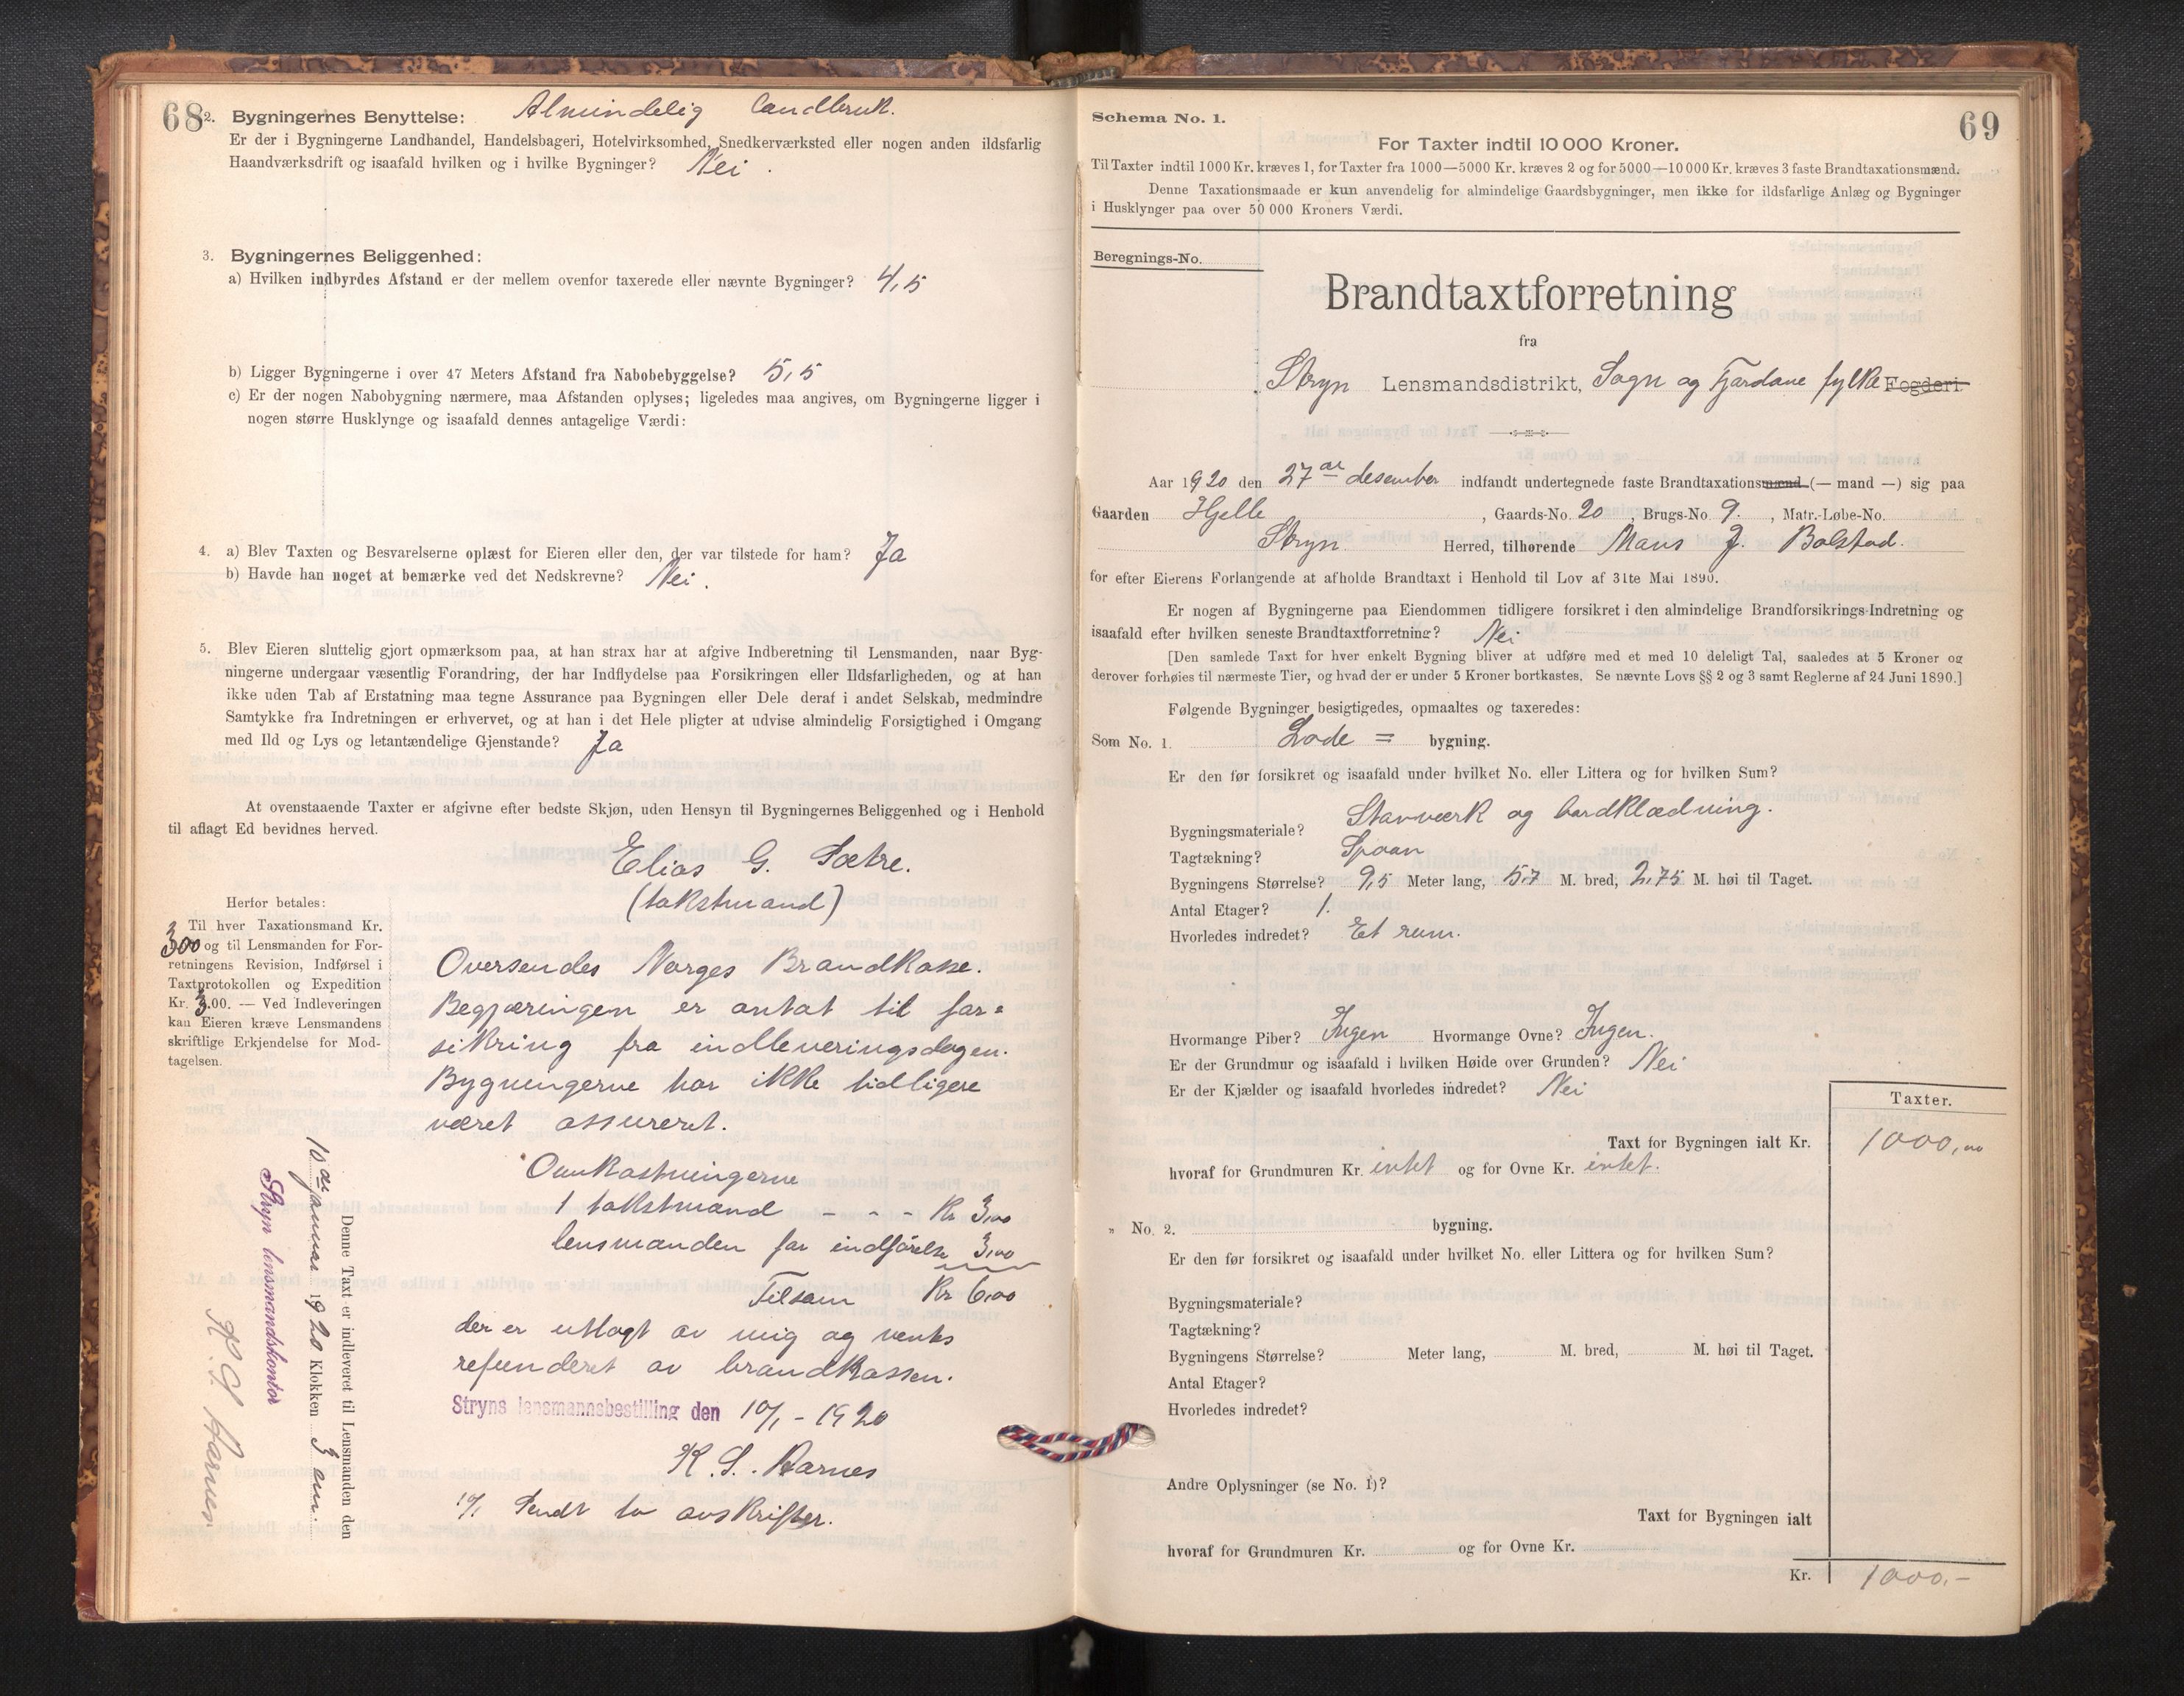 68
2. Bygningernes Benyttelse: Almindelig landbruk.
Er der i Bygningerne Landhandel, Handelsbageri, Hotelvirksomhed, Snedkerværksted eller nogen anden ildsfarlig
Haandværksdrift og isaafald hvilken og i hvilke Bygninger? Nei.
3. Bygningernes Beliggenhed:
a) Hvilken indbyrdes Afstand er der mellem ovenfor taxerede eller nævnte Bygninger? 4,5
b) Ligger Bygningerne i over 47 Meters Afstand fra Nabobebyggelse? 5,5
c) Er der nogen Nabobygning nærmere, maa Afstanden oplyses; ligeledes maa angives, om Bygningerne ligger i
nogen større Husklynge og isaafald dennes antagelige Værdi:
4. a) Blev Taxten og Besvarelserne oplæst for Eieren eller den, der var tilstede for ham? Ja
b) Havde han noget at bemærke ved det Nedskrevne? Nei.
5. Blev Eieren sluttelig gjort opmærksom paa, at han strax har at afgive Indberetning til Lensmanden, naar Byg-
ningerne undergaar væsentlig Forandring, der har Indflydelse paa Forsikringen eller Ildsfarligheden, og at han
ikke uden Tab af Erstatning maa tegne Assurance paa Bygningen eller Dele deraf i andet Selskab, medmindre
Samtykke fra Indretningen er erhvervet, og at han i det Hele pligter at udvise almindelig Forsigtighed i Omgang
med Ild og Lys og letantændelige Gjenstande? Ja
At ovenstaaende Taxter er afgivne efter bedste Skjøn, uden Hensyn til Bygningernes Beliggenhed og i Henhold
til aflagt Ed bevidnes herved.
Elias G. Sætre.
(takstmand)
Herfor betales:
Til hver Taxationsmand Kr.
3,00 og til Lensmanden for For-
retningens Revision, Indførsel i
Taxtprotokollen og Expedition
Kr. 3.00. — Ved Indleveringen
kan Eieren kræve Lensmandens
skriftlige Erkjendelse for Mod-
tagelsen.
Oversendes Norges Brandkasse.
Begjæringen er antat til for=
sikring fra indleveringsdagen.
Bygningerne har ikke tidligere
været assureret.
Omkostningerne
1 takstmand - - - Kr 3,00
lensmanden for indførelse 3,00
Tilsam Kr 6,00
der er utlagt av mig og ventes
refunderet av brandkassen.
Stryns lensmannsbestilling den 10/1 - 1920
K. S. Aarnes
10/1 Sendt to avskrifter.
Denne Taxt er indleveret til Lensmanden den
10de januar 1920 Klokken 3 em.
Stryn lensmandskontor
K. S. Aarnes.
69
Schema No. 1.
For Taxter indtil 10 000 Kroner.
Til Taxter indtil 1000 Kr. kræves 1, for Taxter fra 1000—5000 Kr. kræves 2 og for 5000—10 000 Kr. kræves 3 faste Brandtaxationsmænd.
Denne Taxationsmaade er kun anvendelig for almindelige Gaardsbygninger, men ikke for ildsfarlige Anlæg og Bygninger
i Husklynger paa over 50 000 Kroners Værdi.
Beregnings-No.
Brandtaxtforretning
fra
Stryn Lensmandsdistrikt, Sogn og Fjordane fylke Fogderi
Aar 1920 den 27de desember indfandt undertegnede faste Brandtaxationsmænd (— mand —) sig paa
Gaarden Hjelle, Gaards-No. 20, Brugs-No. 9., Matr.-Løbe-No.
Stryn Herred, tilhørende Mans J. Bolstad.
for efter Eierens Forlangende at afholde Brandtaxt i Henhold til Lov af 31te Mai 1890.
Er nogen af Bygningerne paa Eiendommen tidligere forsikret i den almindelige Brandforsikrings-Indretning og
isaafald efter hvilken seneste Brandtaxtforretning? Nei
[Den samlede Taxt for hver enkelt Bygning bliver at udføre med et med 10 deleligt Tal, saaledes at 5 Kroner og
derover forhøies til nærmeste Tier, og hvad der er under 5 Kroner bortkastes. Se nævnte Lovs §§ 2 og 3 samt Reglerne af 24 Juni 1890.]
Følgende Bygninger besigtigedes, opmaaltes og taxeredes:
Som No. 1. Lade = bygning.
Er den før forsikret og isaafald under hvilket No. eller Littera og for hvilken Sum?
Bygningsmateriale? Stavværk og bordklædning.
Tagtækning? Spaan
Bygningens Størrelse? 9,5 Meter lang, 5,7 M. bred, 2,75 M. høi til Taget.
Antal Etager? 1.
Hvorledes indredet? Et rum.
Hvormange Piber? Ingen Hvormange Ovne? Ingen.
Er der Grundmur og isaafald i hvilken Høide over Grunden? Nei
Er der Kjælder og isaafald hvorledes indredet? Nei
Taxter.
Taxt for Bygningen ialt Kr. 1000,00
hvoraf for Grundmuren Kr. intet og for Ovne Kr. intet.
„ No. 2. bygning.
Er den før forsikret og isaafald under hvilket No. eller Littera og for hvilken Sum?
Bygningsmateriale?
Tagtækning?
Bygningens Størrelse? Meter lang, M. bred, M. høi til Taget.
Antal Etager?
Hvorledes indredet?
Andre Oplysninger (se No. 1)?
Taxt for Bygningen ialt
hvoraf for Grundmuren Kr. og for Ovne Kr.
Kr. 1000.-